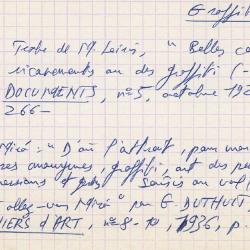 Graffiti
Texte de M. Leiris, "Belles
ou des graffiti (-
DOCUMENTS, n°5, octobre 192
266-
Miró : "D'où l'attrait, pour mo
anonymes, graffiti, art des pe
saisis au vol
allez-vous Miró" par G. DUTHUIT
IERS d'ART, n° 8-10, 1936, p